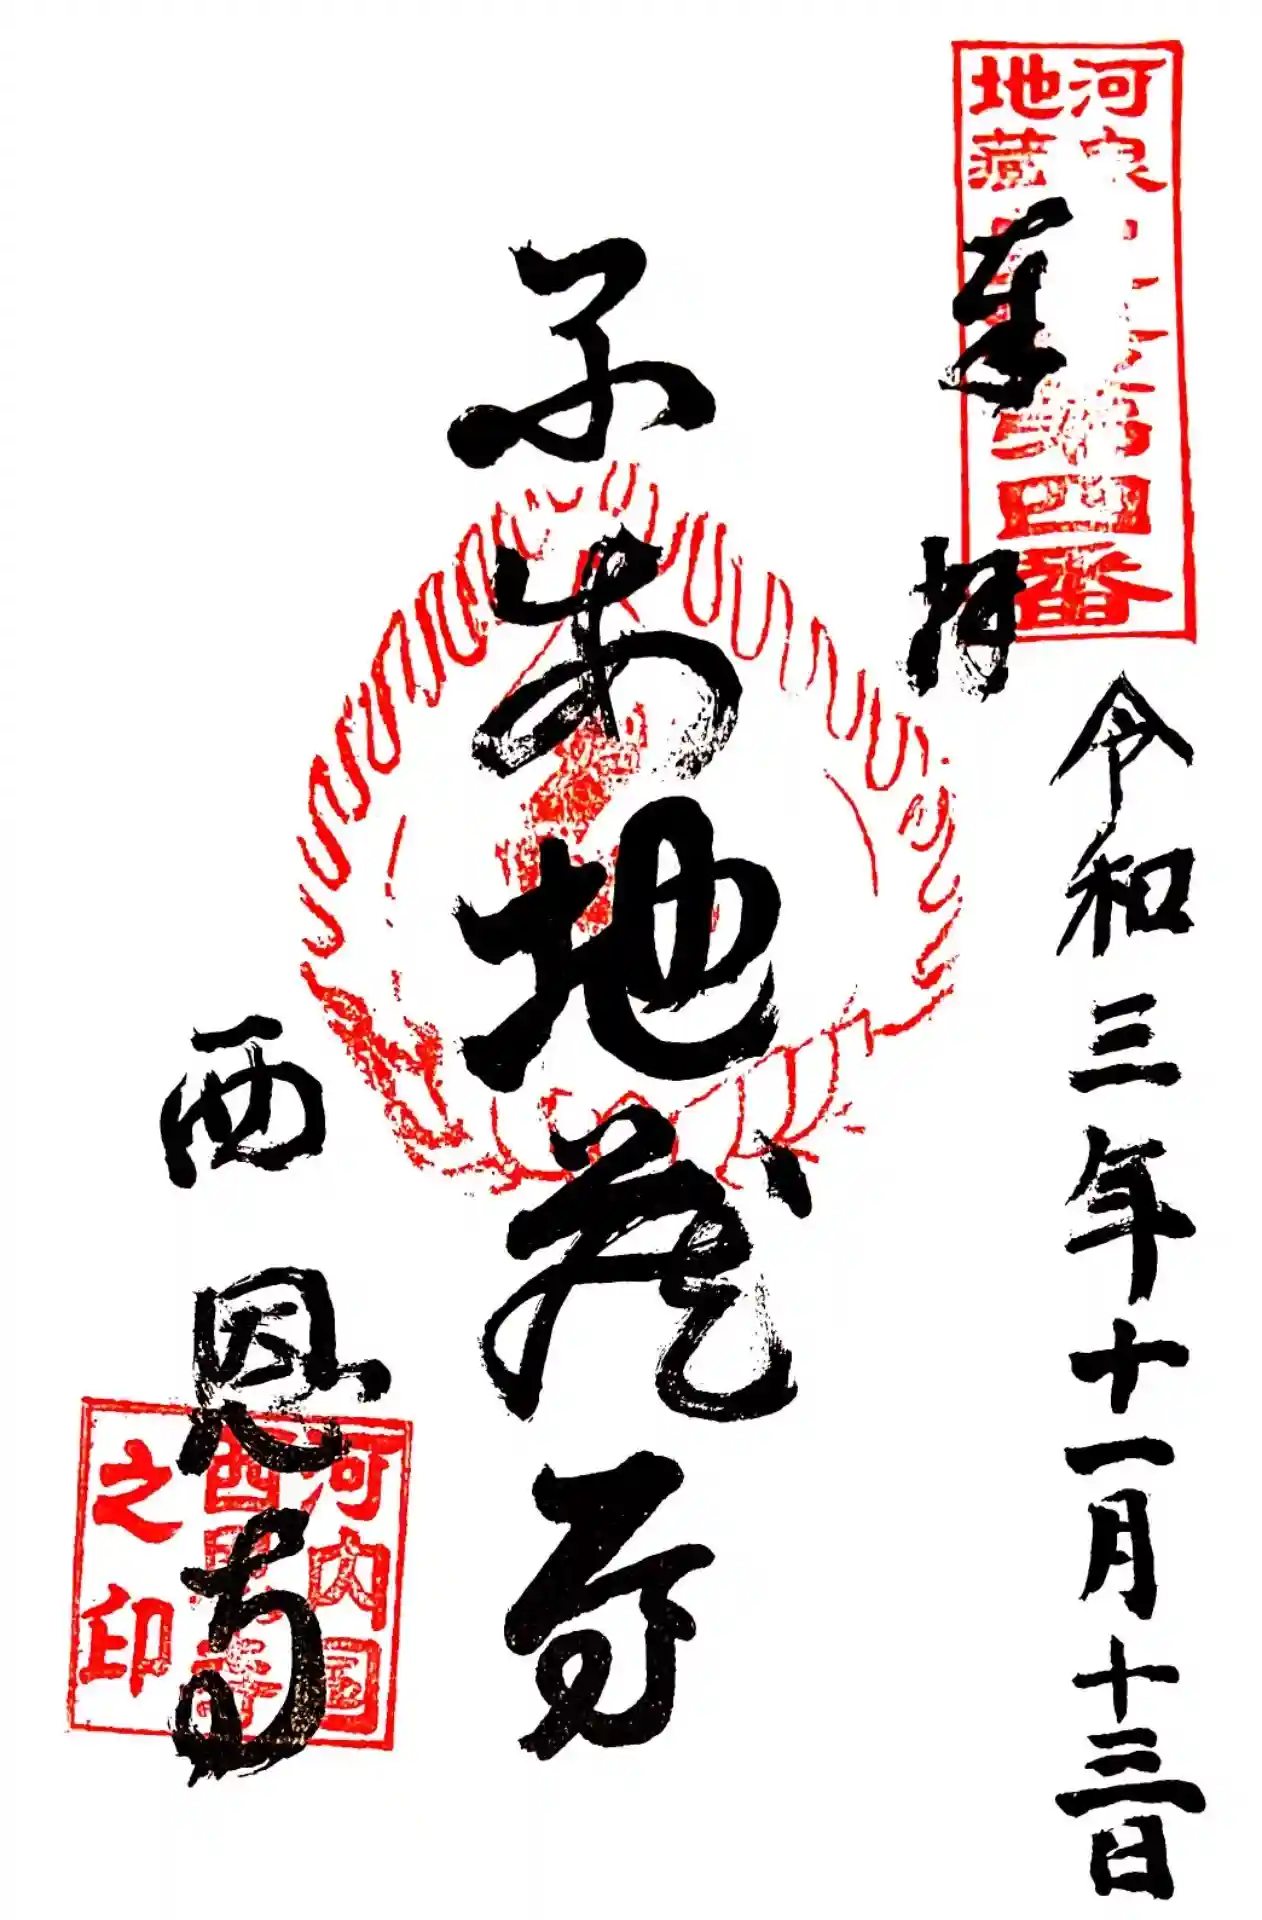 河泉
地蔵
第四番
奉拝
令和三年十一月十三日
子安地蔵尊
西恩寺
河内国
西恩寺
之印